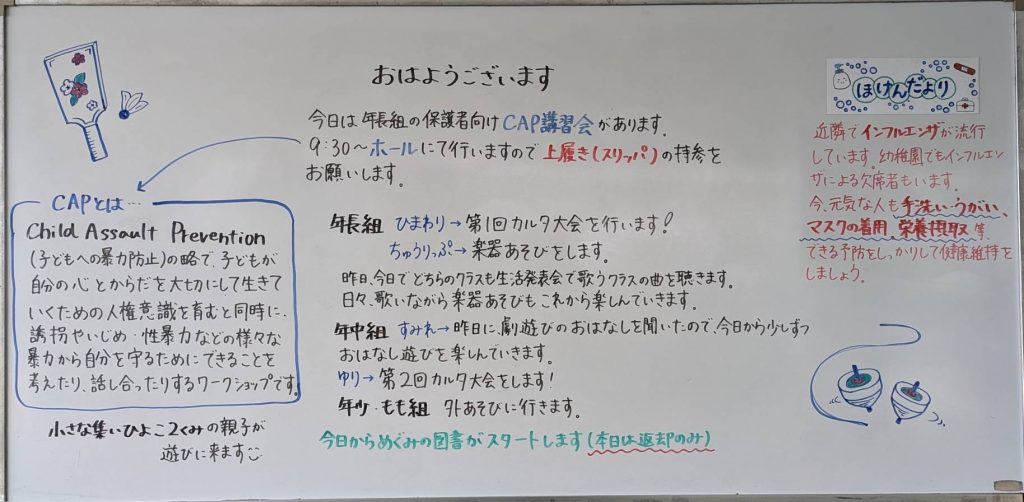 おはようございます
今日は年長組の保護者向けCAP講習会があります。
9:30〜ホールにて行いますので上履き(スリッパ)の持参を
お願いします。
CAPとは…
Child Assault Prevention
(子どもへの暴力防止)の略で、子どもが
自分の心とからだを大切にして生きて
いくための人権意識を育むと同時に、
誘拐やいじめ・性暴力などの様々な
暴力から自分を守るためにできることを
考えたり、話し合ったりするワークショップです。
小さな集いひよこ2くみの親子が
遊びに来ます
年長組 ひまわり→第1回カルタ大会を行います!
ちゅうりっぷ→楽器あそびをします。
昨日、今日でどちらのクラスも生活発表会で歌うクラスの曲を聴きます。
日々、歌いながら楽器あそびもこれから楽しんでいきます。
年中組 すみれ→昨日に、劇遊びのおはなしを聞いたので、今日から少しずつ
おはなし遊びを楽しんでいきます。
ゆり→第2回カルタ大会をします!
年少・もも組 外あそびに行きます。
今日からめぐみの図書がスタートします(本日は返却のみ)
ほけんだより
近隣でインフルエンザが流行
しています。幼稚園でもインフルエン
ザによる欠席者もいます。
今、元気な人も手洗い・うがい、
マスクの着用、栄養摂取 等、
できる予防をしっかりして健康維持を
しましょう。